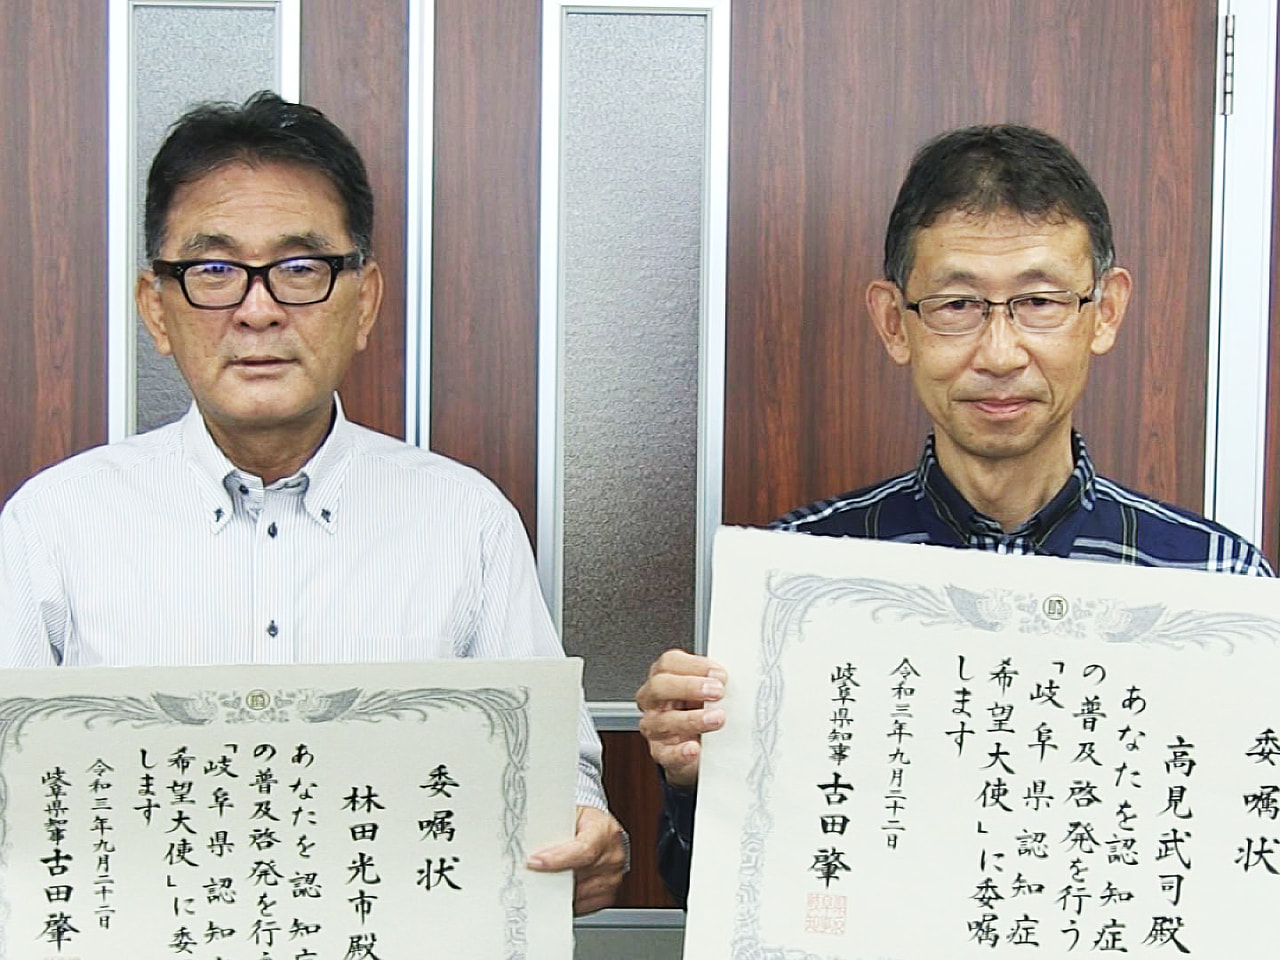 委嘱状
林田光市殿
あなたを認知
の普及啓発を行う
「岐阜県認知
希望大使」に委
します
令和三年九月二十二日
岐阜県知事 古田肇
委嘱状
高見武司殿
あなたを認知症
の普及啓発を行う
「岐阜県認知症
希望大使」に委嘱
します
令和三年九月二十二日
岐阜県知事 古田肇